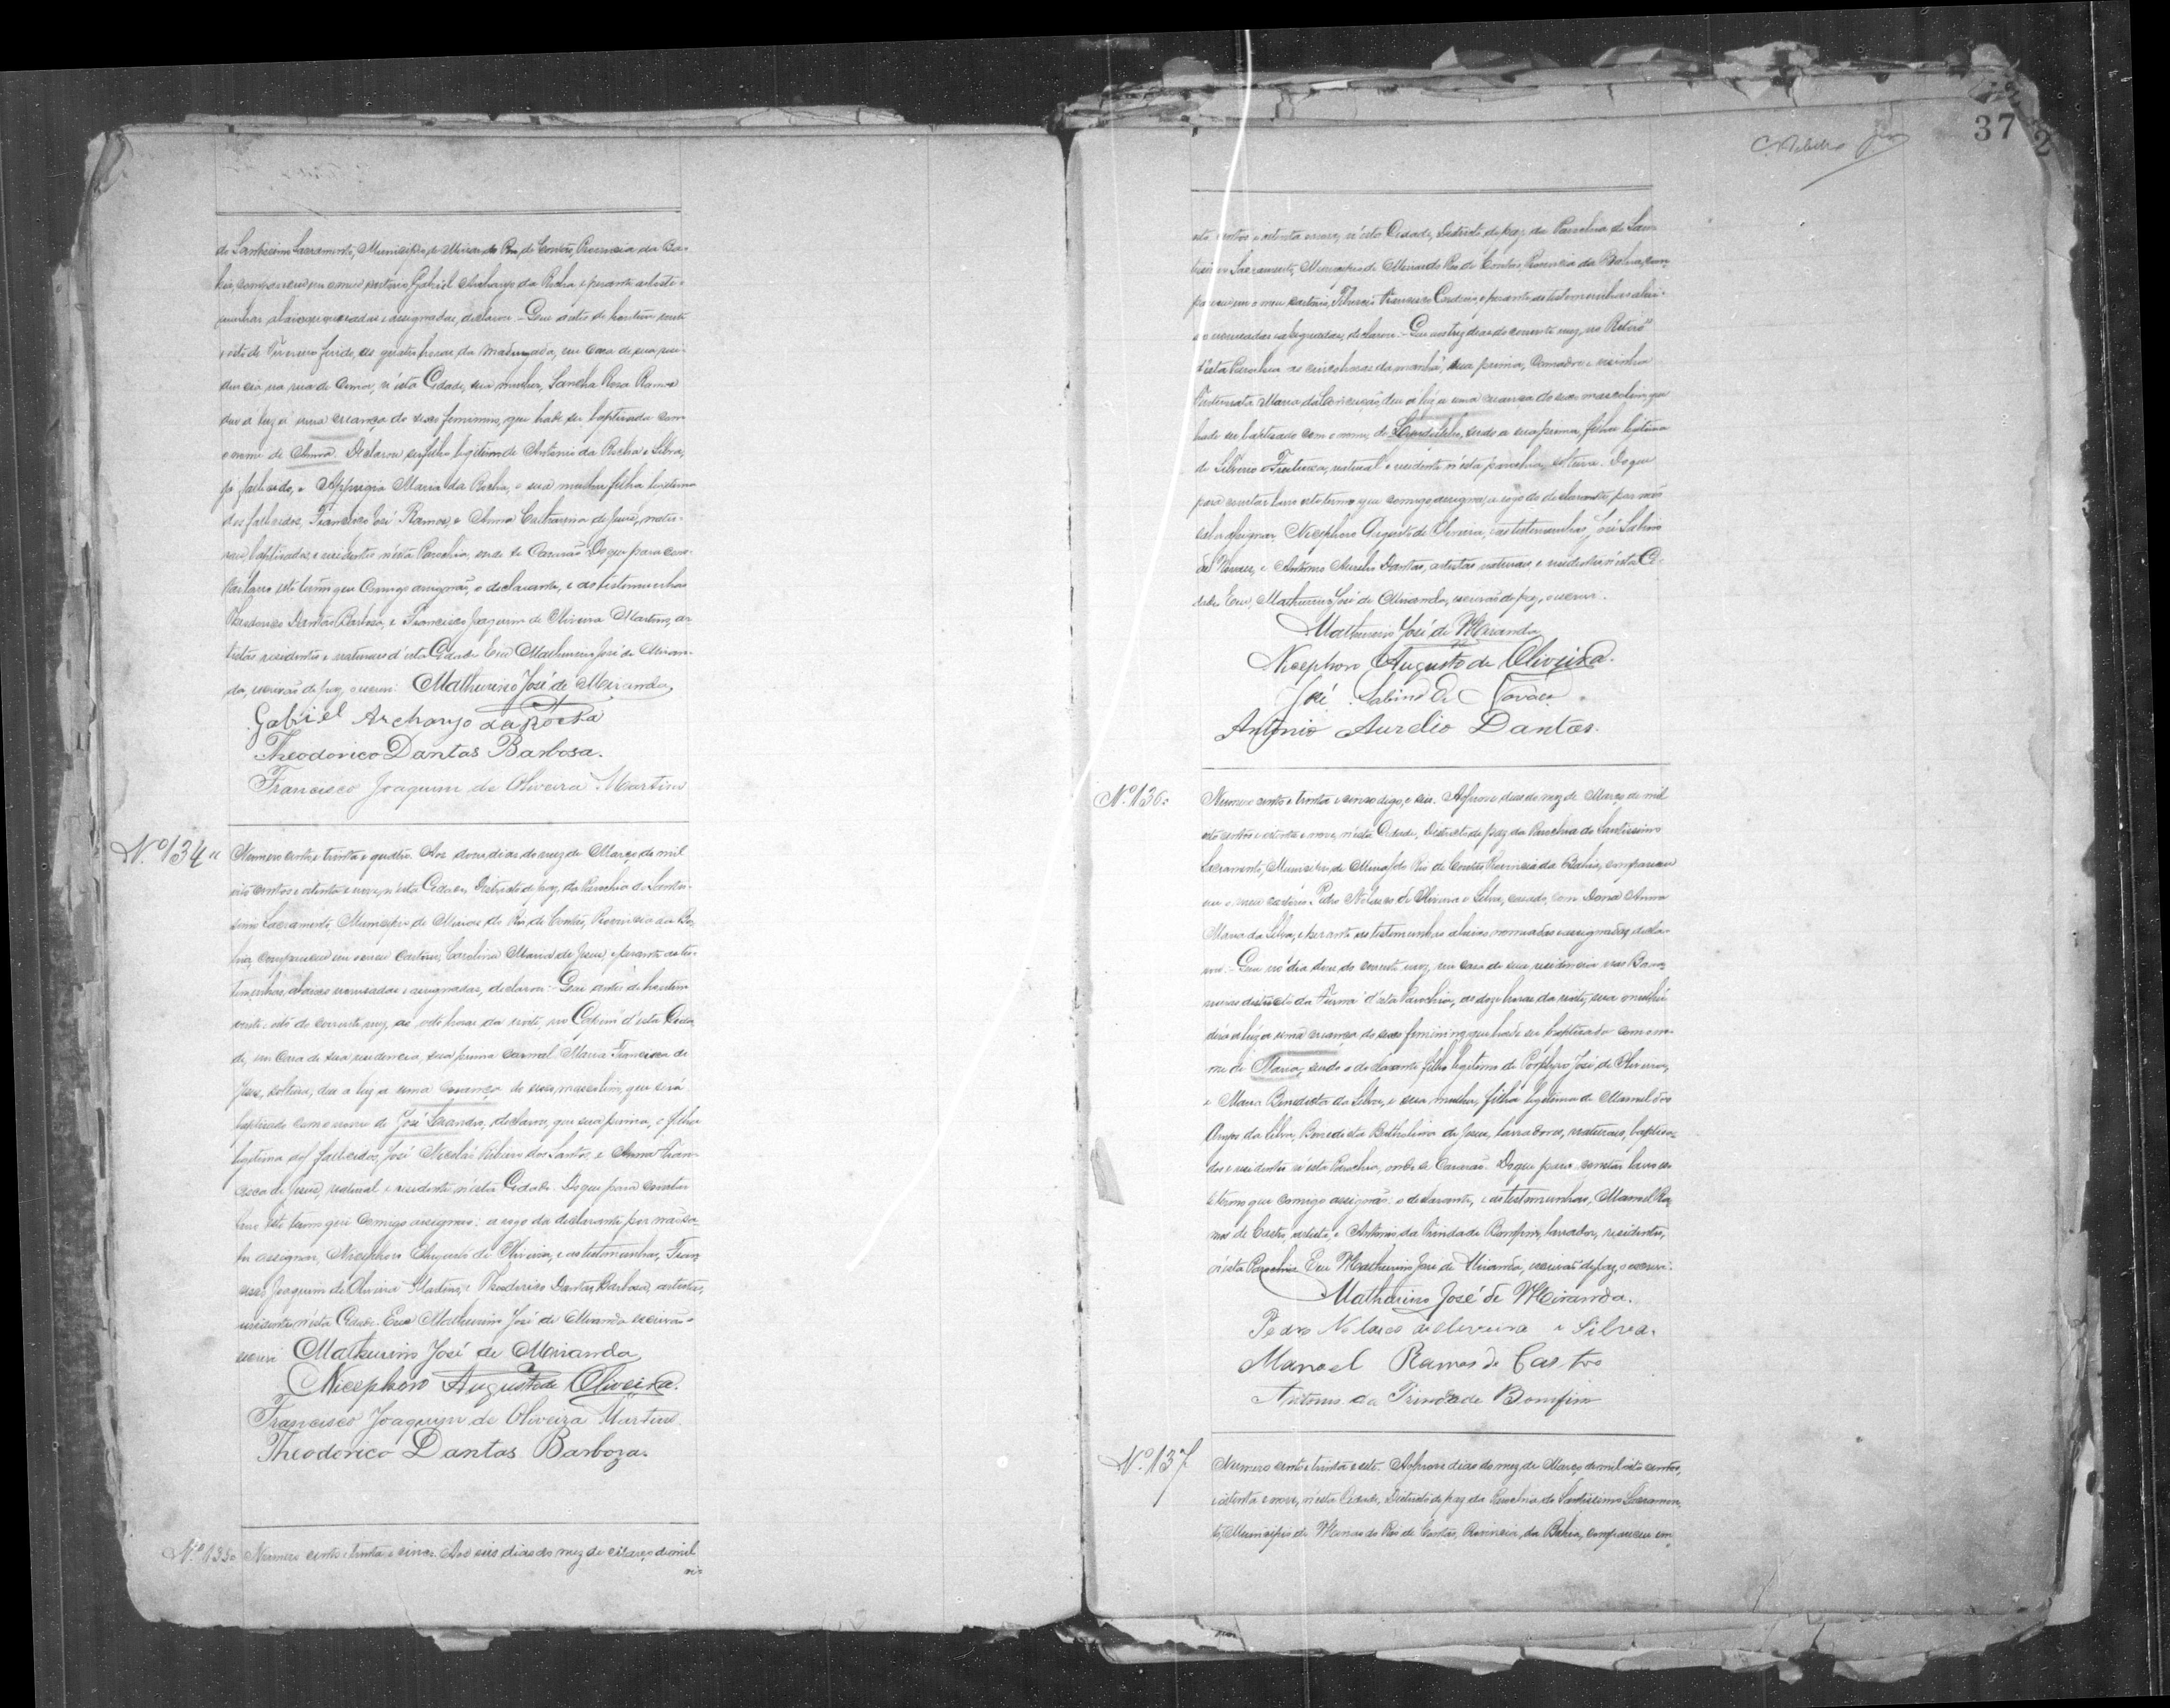 do Santissimo Sacramento, Municipio de Minas do Rio de Contas, Provincia da Ba-
hia, compareceu em o meu cartorio Gabriel Archanjo da Rocha, e perante as teste-
munhas abaixo nomeadas e assignadas, declarou: Que antes de hontem vinte
e oito de Fevereiro findo, as quatro horas da madrugada, em casa de sua resi-
dencia na rua de cima, n'esta Cidade, sua mulher, Sancha Rosa Ramos
deu a luz a uma creança do sexo feminino, que hade ser baptisada com
o nome de Anna. Declarou ser filho legitimo de Antonio da Rocha e Silva,
já fallecido, e Maria da Rocha, e sua mulher filha legitima
dos fallecidos, Francisco José Ramos, e Anna Catharina de Jesus, natu-
raes, baptisados e residentes n'esta Parochia, onde se Casarão. Do que para cons-
tar lavro este termo que comigo assignão, o declarante, e as testemunhas
Theodorico Dantas Barbosa, e Francisco Joaquim de Oliveira Martins, ar-
tistas residentes e naturaes d'esta Cidade. Eu Mathurino José de Miran-
da, escrivão de paz, o escrevi. Mathurino José de Miranda
Gabriel Archanjo da Rocha
Theodorico Dantas Barbosa.
Francisco Joaquim de Oliveira Martins
Nº 134
Numero cento e trinta e quatro. Aos dous dias do mez de Março de mil
oito centos e oitenta e nove, n'esta Cidade, Districto de paz, da Parochia do Santis-
simo Sacramento, Municipio de Minas do Rio de Contas, Provincia da Ba-
hia, compareceu em o meu Cartorio, Carolina Maria de Jesus, e perante as tes-
temunhas, abaixo nomeadas e assignadas, declarou: Que antes de hontem
vinte e oito do corrente mez, as oito horas da noite, no d'esta Cida-
de, em Casa de sua residencia, sua prima carnal Maria Francisca de
Jesus, solteira, deu a luz a uma creança do sexo masculino, que será
baptisado com o nome de José Leandro, declarou, que sua prima, é filha
legitima dos fallecidos, José Nicolao Ribeiro dos Santos, e Anna Fran-
cisca de Jesus, natural e residente n'esta Cidade. Do que para constar
lavro este termo que comigo assignão: a rogo da declarante por não sa-
ber assignar, Nicephoro Augusto de Oliveira, e as testemunhas, Fran-
cisco Joaquim de Oliveira Martins, e Theodorico Dantas Barbosa, artistas,
residentes n'esta Cidade. Eu Mathurino José de Miranda escrivão
escrevi Mathurino José de Miranda
Nicephoro Augusto de Oliveira.
Francisco Joaquim de Oliveira Martins.
Theodorico Dantas Barboza.
Nº 135
Numero cento e trinta e cinco. Aos seis dias do mez de Março de mil
37
oito centos e oitenta e nove, n'esta Cidade, Districto de paz, da Parochia do San-
tissimo Sacramento, Municipio de Minas do Rio de Contas, Provincia da Bahia, com-
pareceu em o meu cartorio, Tiburcio Francisco Cordeiro, e perante as testemunhas abai-
xo nomeadas e assignadas, declarou: Que aos tres dias do corrente mez, no Retiro
d'esta Parochia as cinco horas da manhã, sua prima, comadre e visinha
Maria da Conceição, deu a luz a uma creança do sexo masculino, que
hade ser baptisado com o nome de sendo a sua prima, filha legitima
de Silverio natural e residente n'esta parochia, solteira. Do que
para constar lavro este termo que comigo assignão, a rogo do declarante, por não
saber assignar Nicephoro Augusto de Oliveira, e as testemunhas, José Sabino
de Novaes, e Antonio Aurelio Dantas, artistas, naturaes, e residentes n'esta Ci-
dade. Eu, Mathurino José de Miranda, escrivão de paz, o escrevi.
Mathurino José de Miranda
Nicephoro Augusto de Oliveira.
José Sabino de Novaes
Antonio Aurelio Dantas.
Nº 136
Numero cento e trinta e cinco digo, e seis. Aos nove dias do mez de Março de mil
oito centos e oitenta e nove, n'esta Cidade, Districto de paz da Parochia do Santissimo
Sacramento, Municipio de Minas do Rio de Contas, Provincia da Bahia, compareceu
em o meu cartorio Pedro Nolasco de Oliveira e Silva, casado, com Dona Anna
Maria da Silva, e perante as testemunhas abaixo nomeadas e assignadas, decla-
rou: Que no dia do corrente mez, em casa de sua residencia nas
districto da Furna d'esta Parochia, as doze horas da noite, sua mulher
deu a luz a uma creança do sexo feminino, que hade ser baptisada com o no-
me de Maria, sendo o declarante filho legitimo de Porphyro José de Oliveira,
e Maria Benedicta da Silva, e sua mulher, filha legitima de Manoel dos
Anjos da Silva, Benedicta de Jesus, lavradores, naturaes, baptisa-
dos e residentes n'esta Parochia, onde se Casarão. Do que para constar lavro es-
te termo que comigo assignão: o declarante, e as testemunhas, Manoel Ra-
mos de Castro, artista, e Antonio da Trindade Bomfim, lavrador, residentes,
n'esta Parochia. Eu Mathurino José de Miranda, escrivão de paz, o escrevi.
Mathurino José de Miranda.
Pedro Nolasco de Oliveira e Silva.
Manoel Ramos de Castro
Antonio da Trindade Bomfim
Nº 137
Numero cento e trinta e sete. Aos nove dias do mez de Março de mil oito centos,
e oitenta e nove, n'esta Cidade, Districto de paz da Parochia do Santissimo Sacramen-
to, Municipio de Minas do Rio de Contas, Provincia, da Bahia, compareceu em